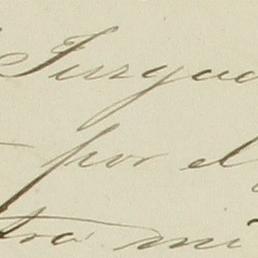 Juzgad
por el
tra mi